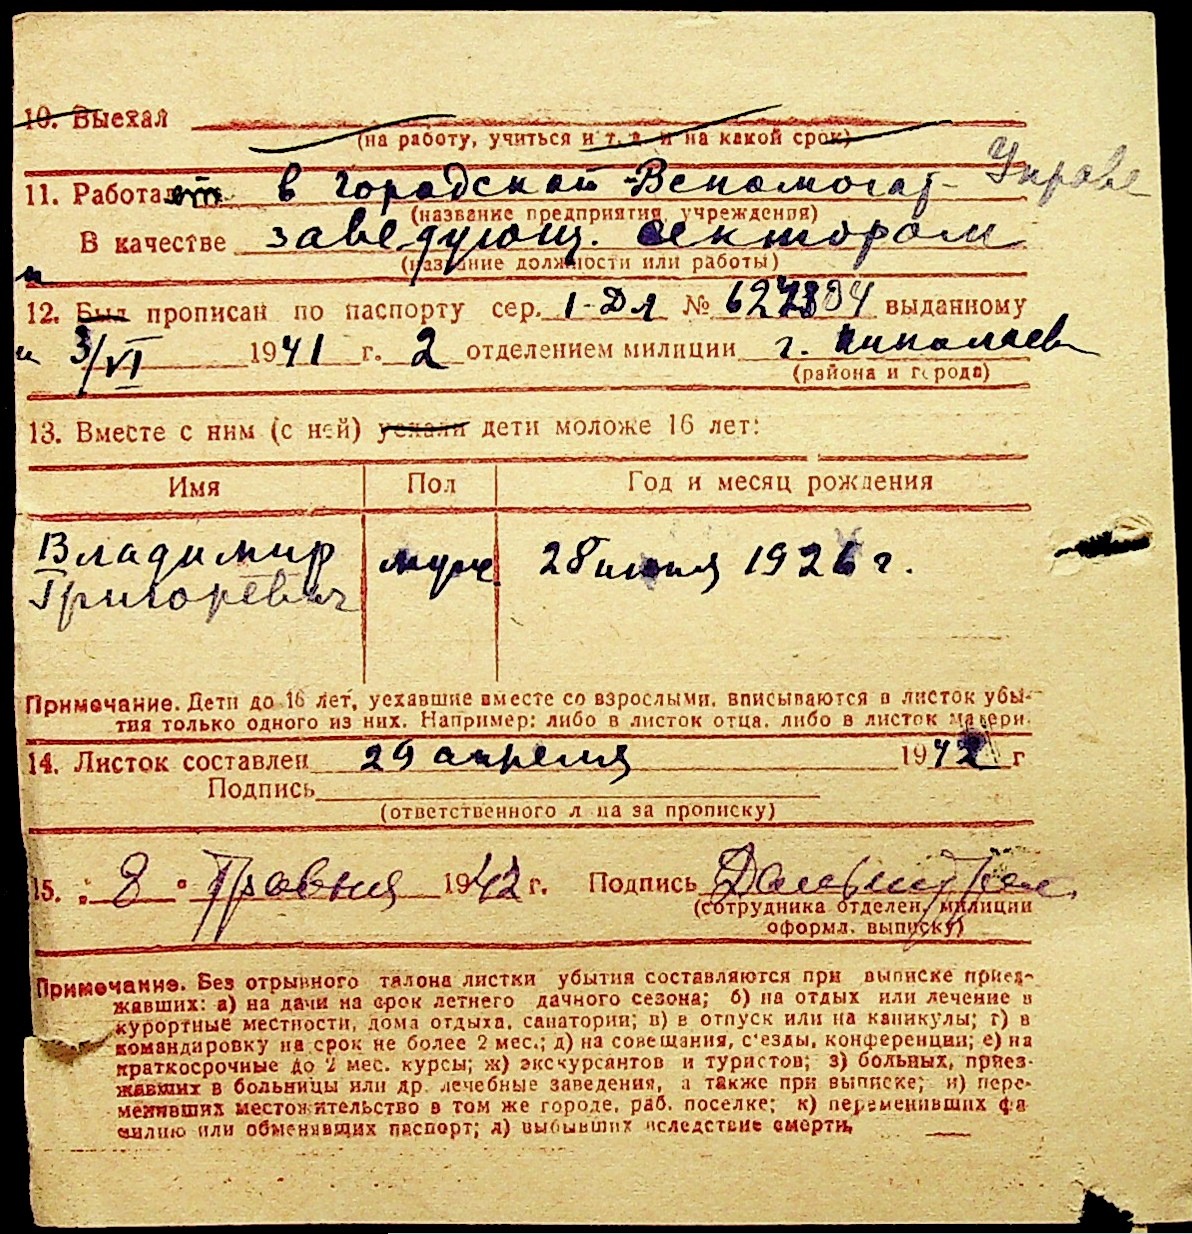 10. Выехал
(на работу, учиться и т. д. и на какой срок)
11. Работает в городской Вспомогат- Управе
(название предприятия, учреждения)
В качестве заведующ. сектором
(название должности или работы)
и
12. Был прописан по паспорту сер. 1-Дл № выданному
и 3/VI 1941 г. 2 отделением милиции г. Николаев
(района и города)
13. Вместе с ним (с ней) уехали дети моложе 16 лет:
Имя Пол Год и месяц рождения
Владимир муж 28 июня 1926 г.
Григоревич
Примечание. Дети до 16 лет, уехавшие вместе со взрослыми, вписываются в листок убы-
тия только одного из них. Например: либо в листок отца, либо в листок матери.
14. Листок составлен 29 апреля 1942 г
Подпись
(ответственного лица за прописку)
15. " 8 " Травня 1942 г. Подпись
(сотрудника отделен. милиции
оформл. выписку)
Примечание. Без отрывного талона листки убытия составляются при выписке приез-
жавших: а) на дачи на срок летнего дачного сезона; б) на отдых или лечение в
курортные местности, дома отдыха, санатории; в) в отпуск или на каникулы; г) в
командировку на срок не более 2 мес.; д) на совещания, с'езды, конференции; е) на
краткосрочные до 2 мес. курсы; ж) экскурсантов и туристов; з) больных, приез-
жавших в больницы или др. лечебные заведения, а также при выписке; и) пере-
менивших местожительство в том же городе, раб. поселке; к) переменивших фа
милию или обменявших паспорт; л) выбывших вследствие смерти.